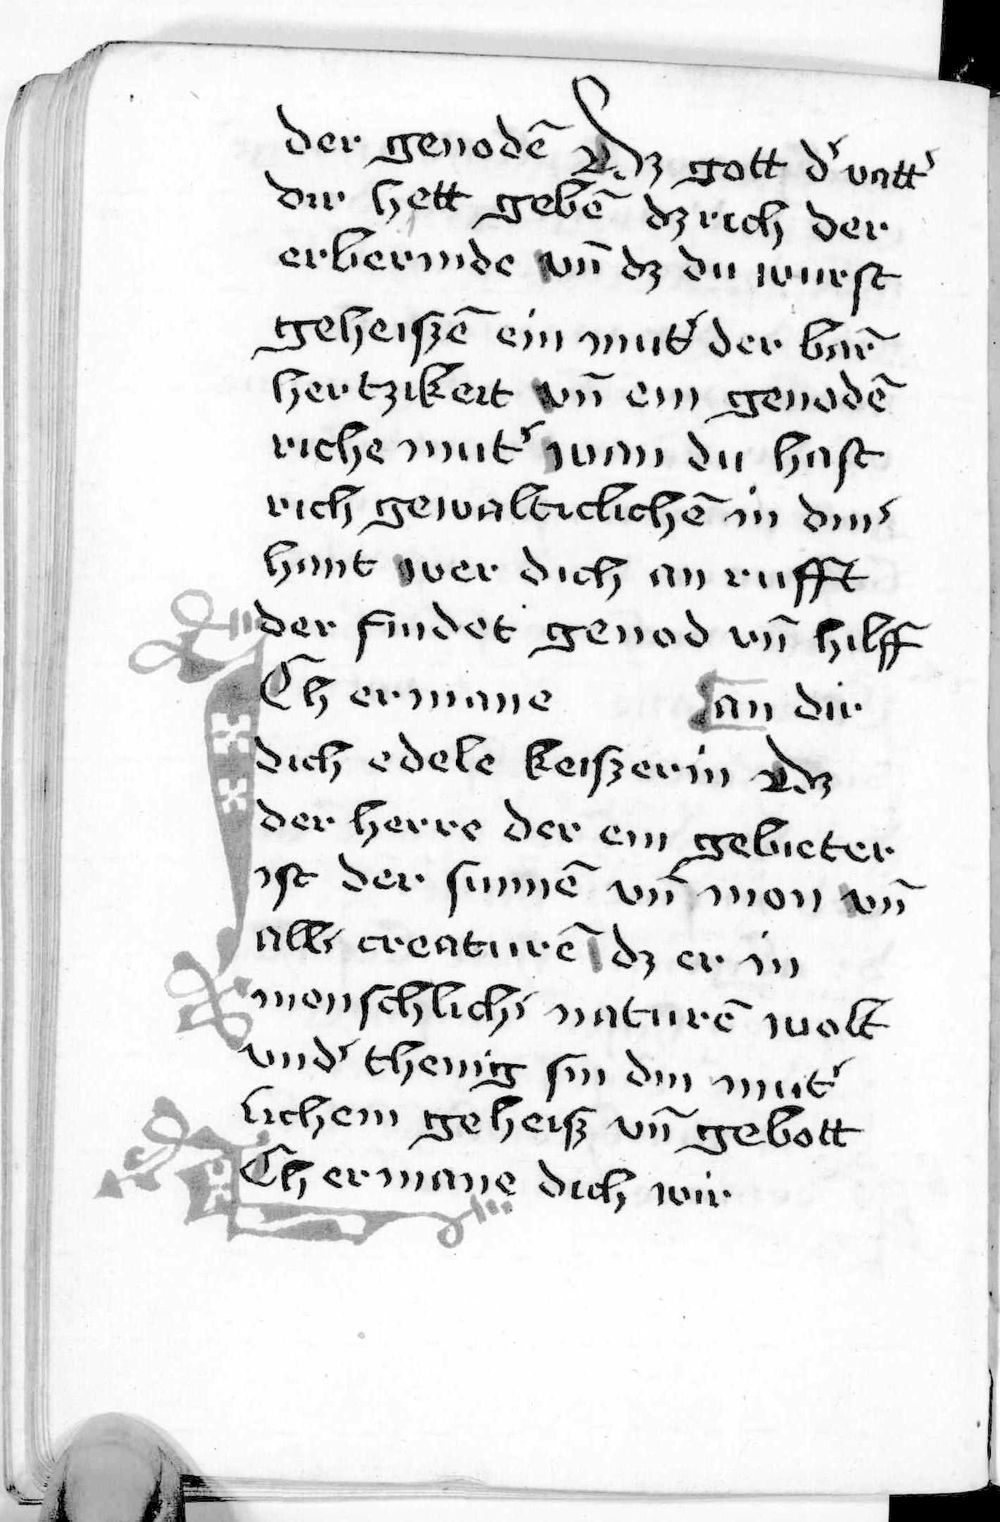 der genodē Ddz gott d' vatt'
dir hett gebē dz rich der
erbermde vn̄ dz du wurst
geheiszē ein mut' der bar̄
hertzikeit vn̄ ein genodē
riche mut' wan du hast
rich gewalticlichē in din'
hant wer dich an rufft
der findet genod vn̄ hilff
Ich ermane an dir
dich edele keiszerin Ddz
der herre der ein gebieter
ist der sunnē vn̄ mon vn̄
all' creaturē dz er in
menschlich' naturē wolt
vnd' thenig sin din mut'
lichem geheisz vn̄ gebott
Ich ermane dich wir